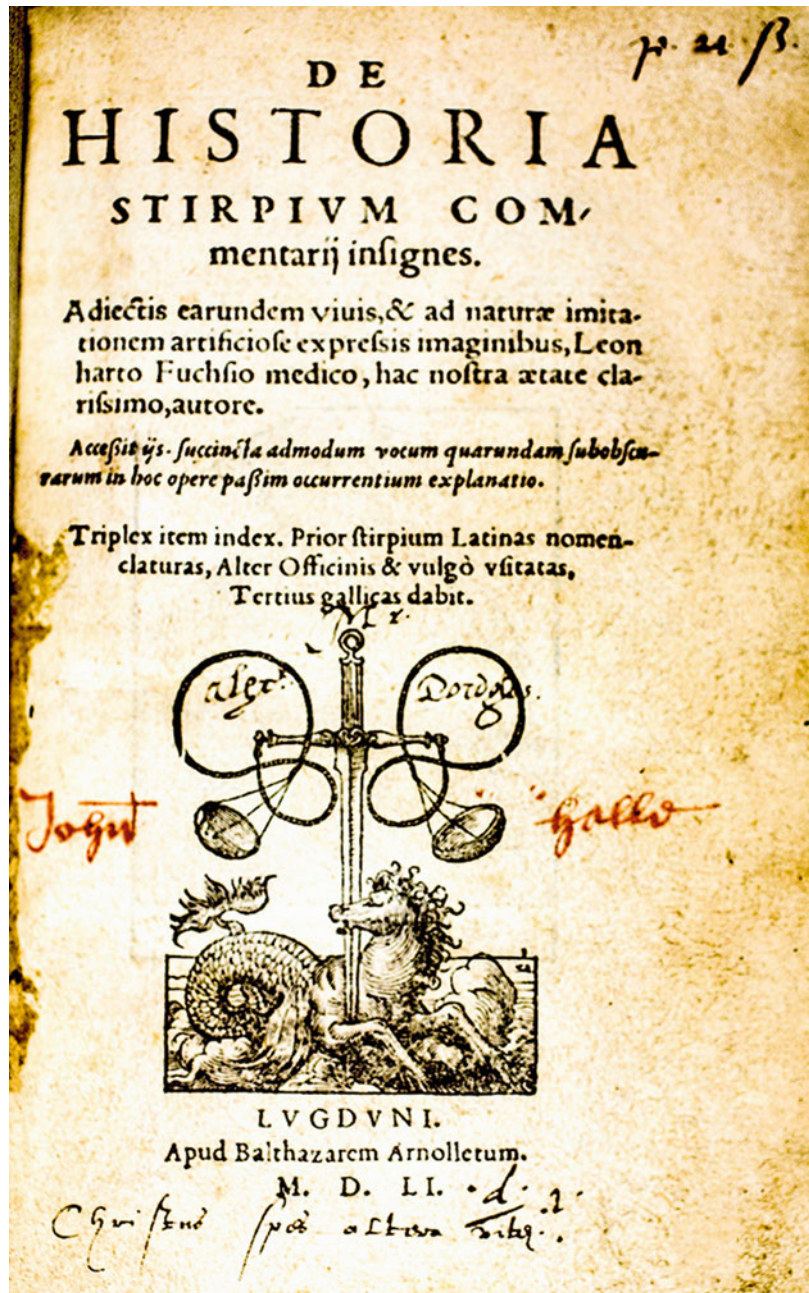 DE
HISTORIA
STIRPIVM COM-
mentarij inſignes.
Adiectis earundem viuis, & ad naturæ imita-
tionem artificioſe expreſsis imaginibus, Leon
harto Fuchſio medico, hac noſtra ætate cla-
riſsimo, autore.
Acceßit ijs. ſuccincta admodum vocum quarundam ſubobſcu-
rarum in hoc opere paßim occurrentium explanatio.
Triplex item index. Prior ſtirpium Latinas nomen-
claturas, Alter Officinis & vulgò vſitatas,
Tertius gallicas dabit.
John
LVGDVNI.
Apud Balthazarem Arnolletum.
M. D. LI.
Chriſtus ſpes altera